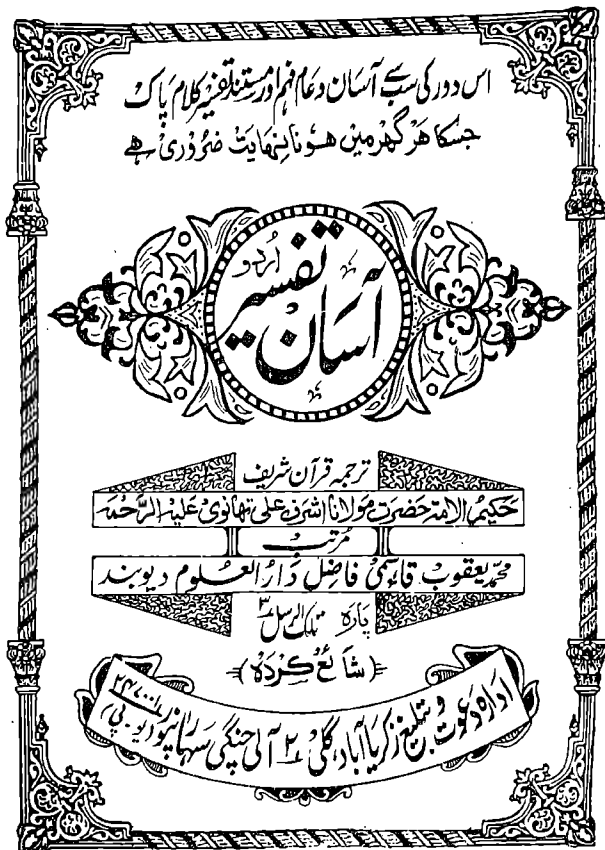 اس دور کی سب سے آسان و عام فہم اور مستند تفسیر کلام پاک
جس کا ہر گھر میں ہونا نہایت ضروری ہے
آسان تفسیر اردو
ترجمہ قرآن شریف
حکیم الامت حضرت مولانا اشرف علی تھانوی علیہ الرحمہ
مرتب
محمد یعقوب قاسمی فاضل دارالعلوم دیوبند
پارہ تلک الرسل ۳
(شائع کردہ)
ادارہ دعوت و تبلیغ زکریا آباد، گلی ۲ آلی چنگی سہارنپور ۲۴۷۰۰۱ (یو۔پی)